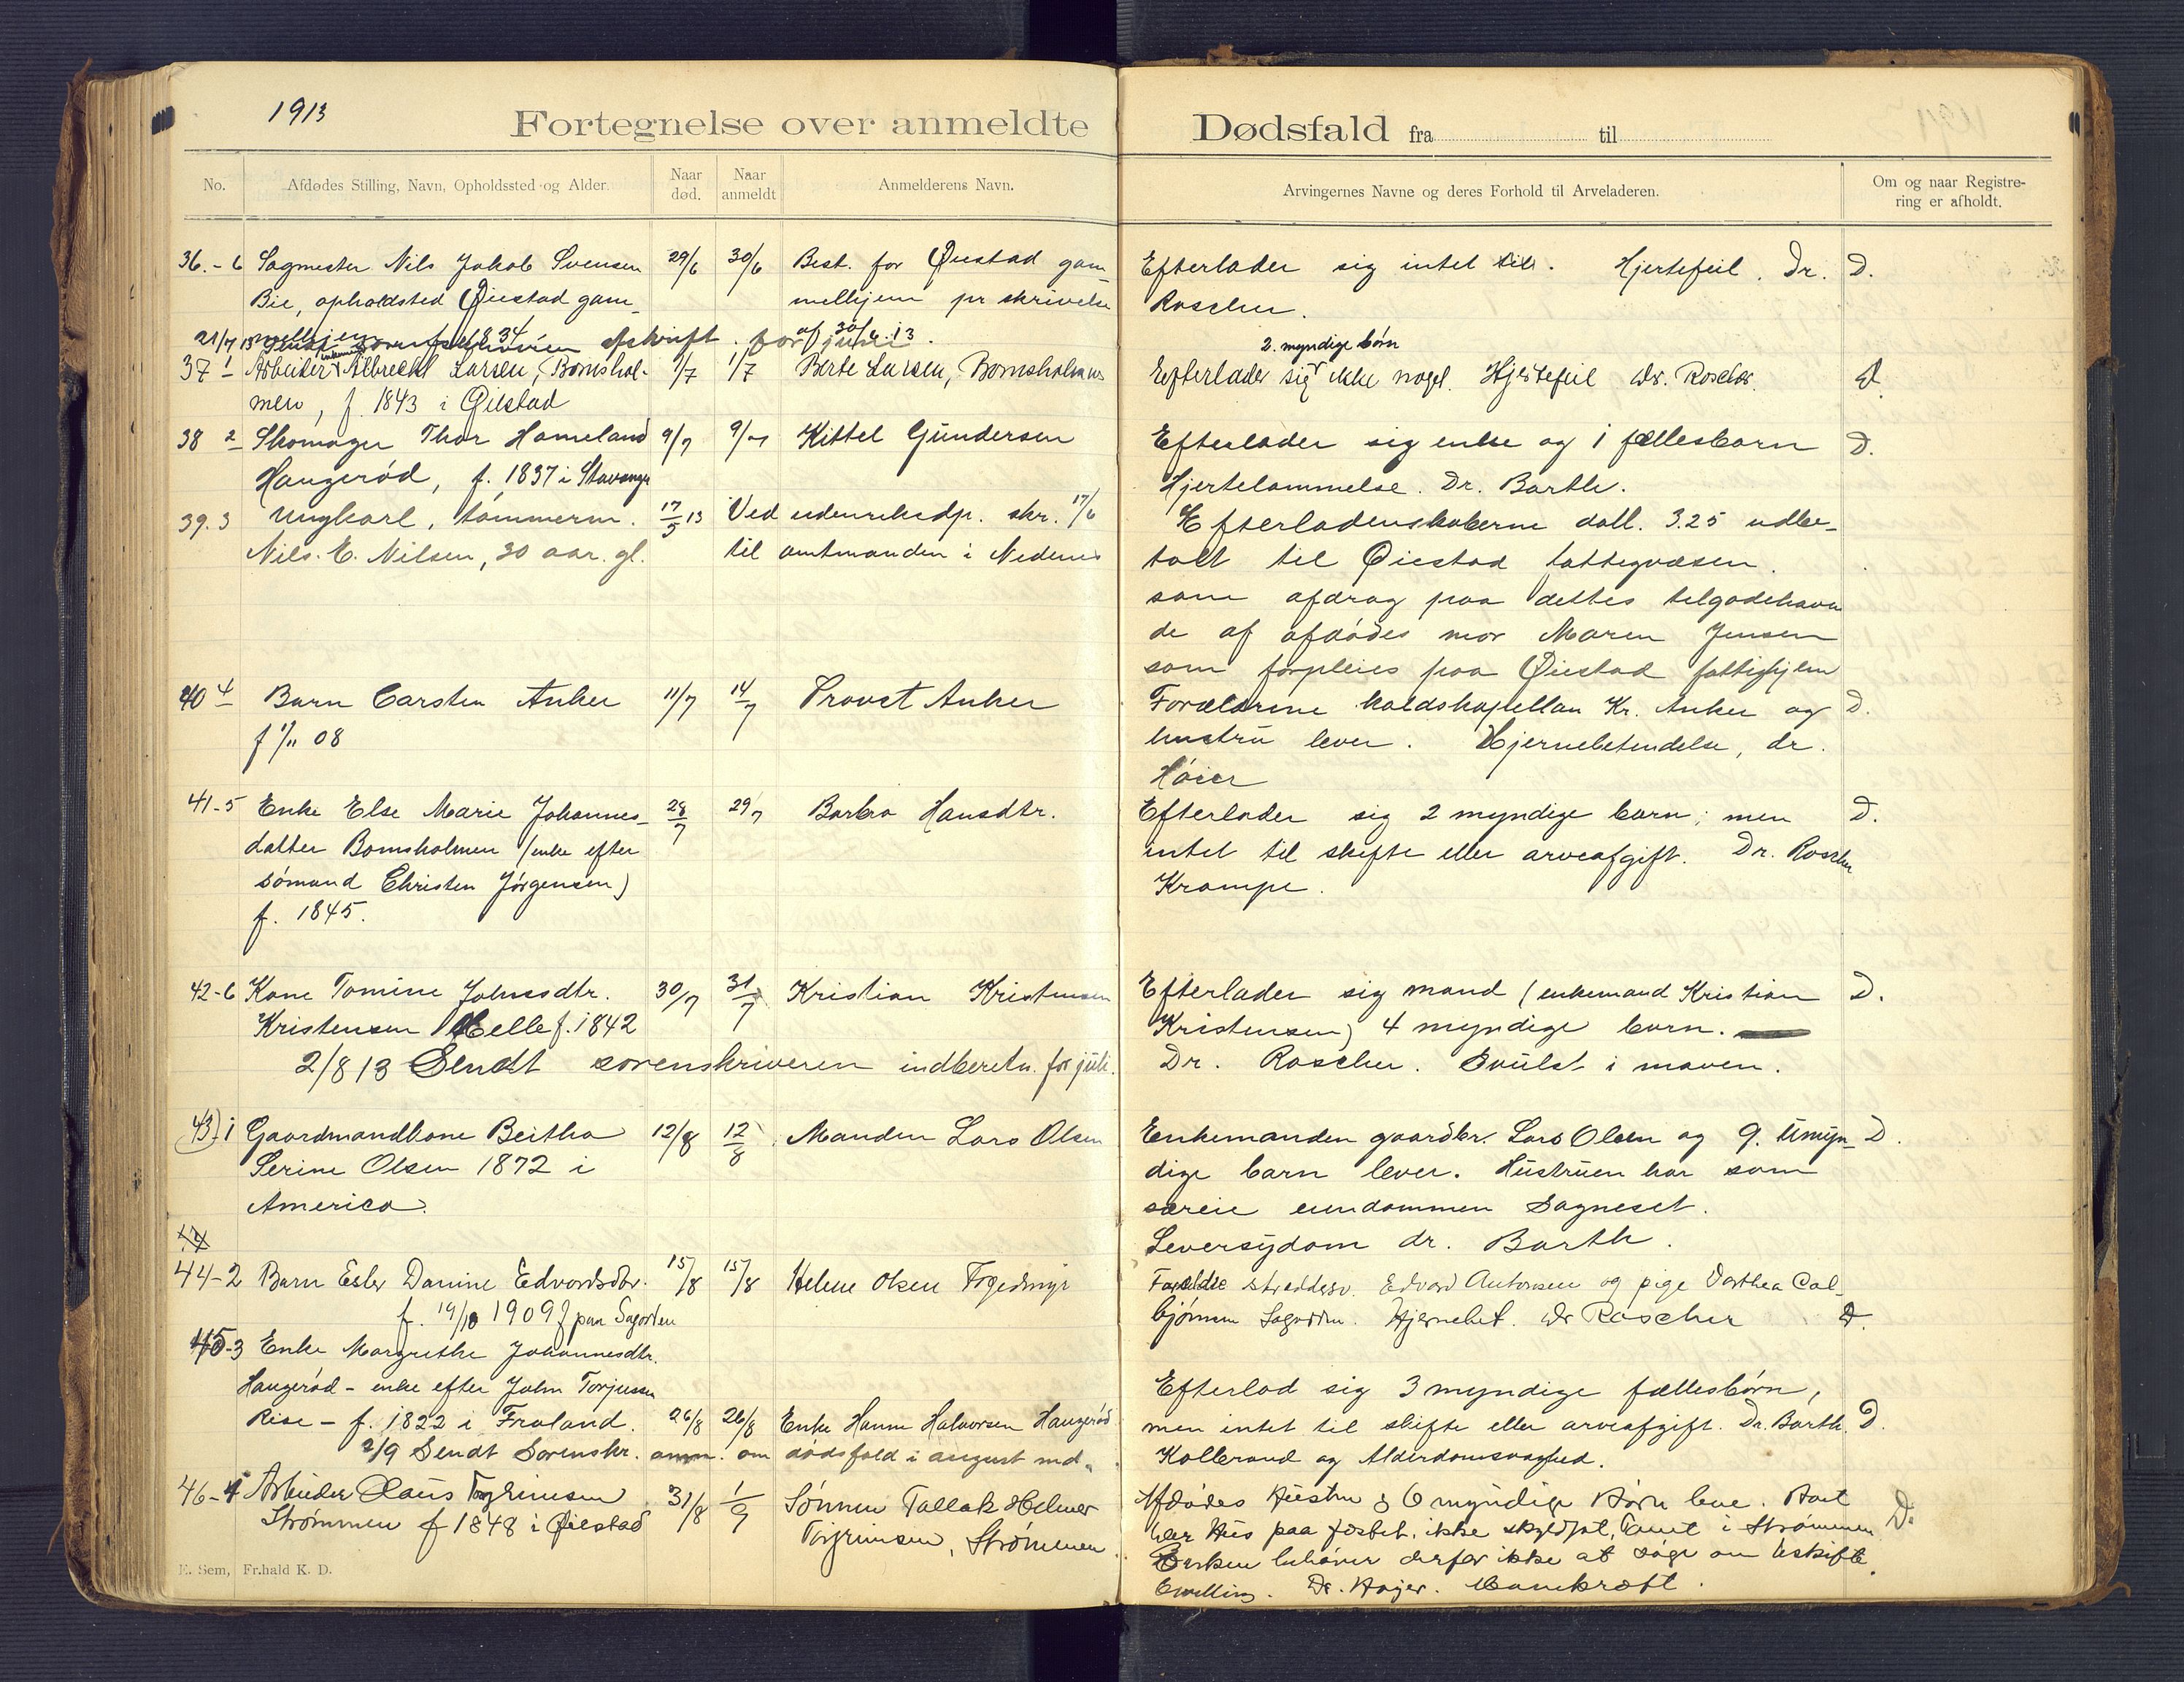 1913
Fortegnelse over anmeldte Dødsfald fra til
No.
Afdødes Stilling, Navn, Opholdssted og Alder.
Naar død.
Naar anmeldt
Anmelderens Navn.
Arvingernes Navne og deres Forhold til Arveladeren.
Om og naar Registre-
ring er afholdt.
36.-6 Sagmester Nils Jakob Svensen 29/6 30/6 Best. for Øiestad gam- Efterlader sig intet. Hjertefeil. Dr. D.
Bie, opholdsted Øiestad gam- melhjem pr skrivelse Roscher.
melhjem f. 1834 af 30/6 13
21/7 13 Sendt sorenskriveren Afskrift for juni.
2 myndige børn
37 1 Arbeider enkemand Albrecht Larsen, Bomshol- 1/7 1/7 Berte Larsen, Bomsholmen Efterlader sig ikke noget. Hjertefeil Dr. Roscher. D.
men, f. 1843 i Øiestad
38 2 Skomager Thor Hameland 9/7 9/7 Kittel Gundersen Efterlader sig enke og 1 fællesbarn D.
Haugerød, f. 1837 i Stavanger Hjertelammelse. Dr. Barth.
39.3 Ungkarl, tømmerm. 17/5 13 Ved udenriksdp. skr. 17/6 Efterladenskaberne doll. 3.25 udbe-
Nils. E. Nilsen, 30 aar gl. til amtmanden i Nedenes talt til Øiestad fattigvæsen.
som afdrag paa dettes tilgodehaven
de af afdødes mor Maren Jensen
som forpleies paa Øiestad fattighjem
40 4 Barn Carsten Anker 11/7 14/7 Provst Anker Forældrene kaldskapellan Kr. Anker og D.
f 1/11 08 hustru lever. Hjernebetendelse, dr.
Høier
41-5 Enke Else Marie Johannes- 28/7 29/7 Barbra Hansdtr. Efterlader sig 2 myndige barn; men D.
datter Bomsholmen (enke efter intet til skifte eller arveafgift. Dr. Roscher
sømand Christen Jørgensen) Krampe.
f. 1845.
42-6 Kone Tomine Johnsdtr. 30/7 31/7 Kristian Kristensen Efterlader sig mand (enkemand Kristian D.
Kristensen Helle f. 1842 Kristensen) 4 myndige barn.
2/8 13 Sendt sorenskriveren indberetn. for juli. Dr. Roscher. Svulst i maven.
43) 1 Gaardmandkone Beitha 12/8 12/8 Manden Lars Olsen Enkemanden gaardbr. Lars Olsen og 9. Umyn- D.
Serine Olsen 1872 i dige barn lever. Hustruen har som
America. særeie eiendommen Sagneset.
Leversydom dr. Barth.
44-2 Barn Ester Danine Edvardsdtr. 15/8 15/8 Helene Olsen Fogedmyr Forældre Edvard Antonsen og pige Dorthea Cal-
f. 19/10 1909 paa Sagodden bjørnsen Sagodden. Hjernebet. Dr Roscher D.
45-3 Enke Margrethe Johannesdtr.
Haugerød - enke efter John Torjussen Efterlod sig 3 myndige fællesbørn,
Rise - f. 1822 i Froland. 26/8 26/8 Enke Hanne Halvorsen Haugerød men intet til skifte eller arveafgift. Dr. Barth. D.
2/9 Sendt Sorenskr. anm. om dødsfald i august md. Kolleraud og Alderdomssvaghed.
46-4 Arbeider Claus Torgrimsen 31/8 1/9 Sønnen Tallak Helmer Afdødes Hustru & 6 myndige Børn leve. Boet D.
Strømmen f 1848 i Øiestad Torgrimsen, Strømmen har Hus paa festet, ikke skyldsat, Tomt i Strømmen
Enken behøver derfor ikke at søge om Uskifte
bevilling. Dr. Høyer. Mavekræft.
E. Sem, Fr.hald K. D.